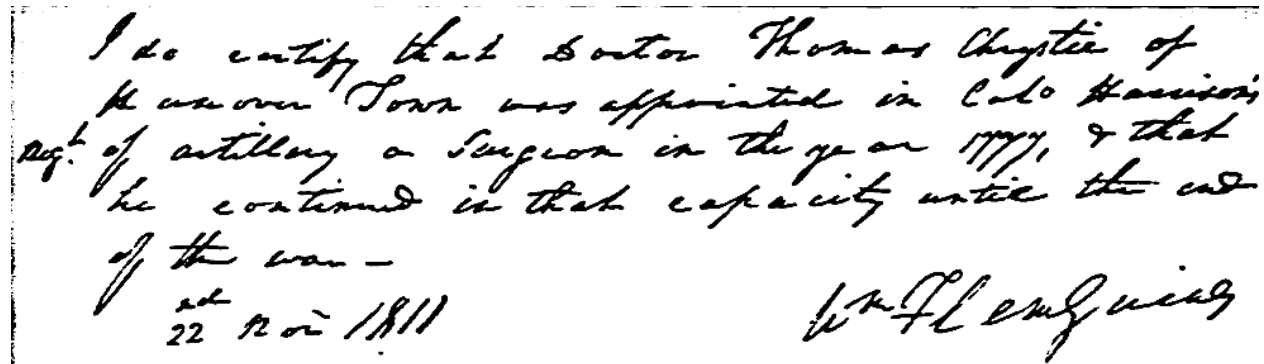 I do certify that Doctor Thomas Chrystie of
Hanover Town was appointed in Colo Harrison's
Regt. of artillery a Surgeon in the year 1777, & that
he continued in that capacity until the end
of the war —
22nd Nov 1811
Wm Fleming